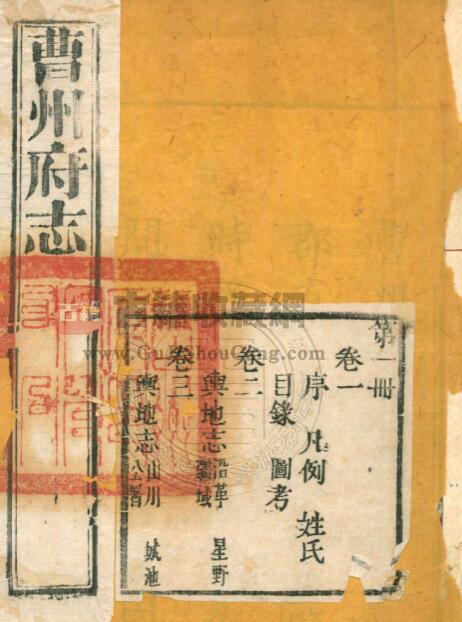 曹州府志
第一冊
卷一
序 凡例 姓氏
目錄 圖考
卷二
輿地志 沿革 星野
疆域
卷三
輿地志 山川 城池
公署
古籍 古籍收藏網
www.GuJiShouCang.com